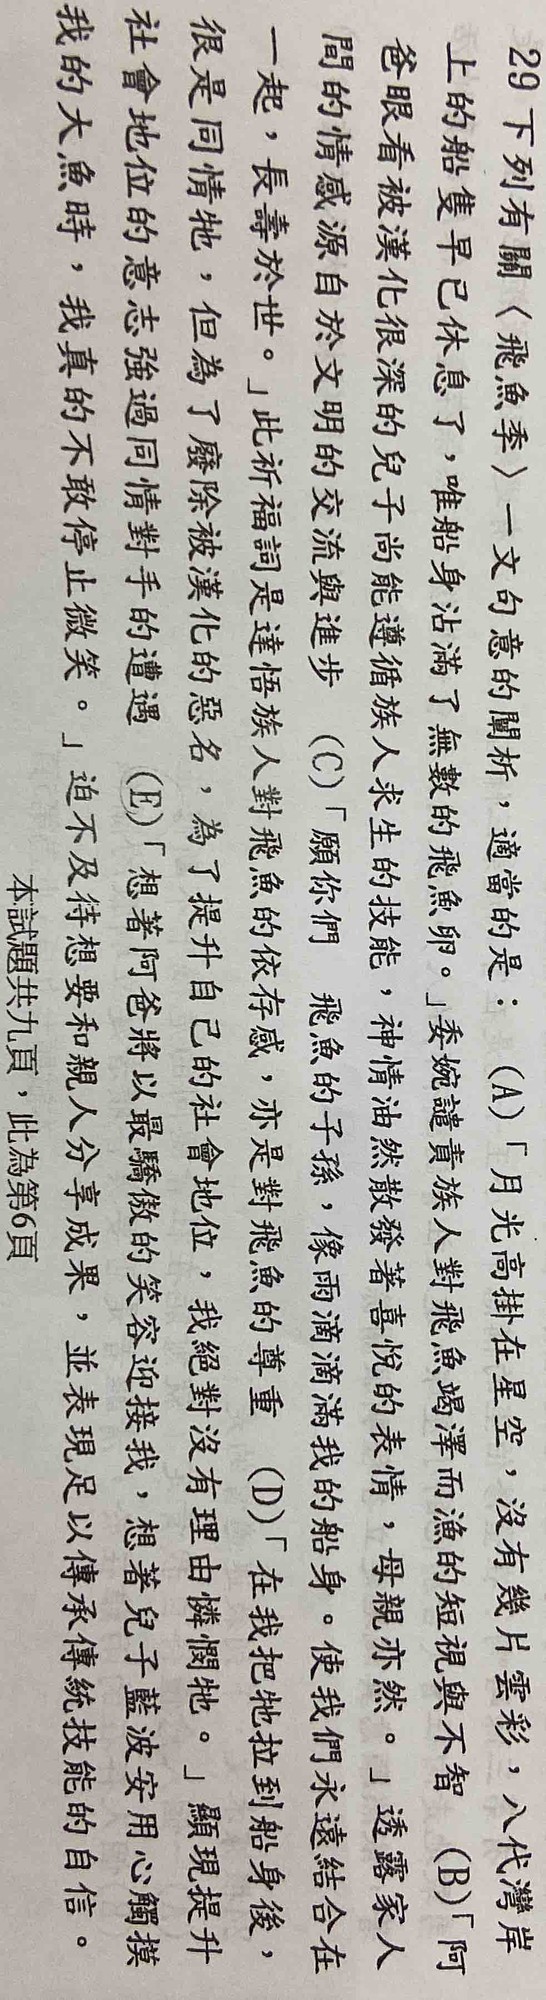 29 下列有關〈飛魚季〉一文句意的闡析，適當的是： (A)「月光高掛在星空，沒有幾片雲彩，八代灣岸
上的船隻早已休息了，唯船身沾滿了無數的飛魚卵。」委婉譴責族人對飛魚竭澤而漁的短視與不智 (B)「阿
爸眼看被漢化很深的兒子尚能遵循族人求生的技能，神情油然散發著喜悅的表情，母親亦然。」透露家人
間的情感源自於文明的交流與進步 (C)「願你們 飛魚的子孫，像雨滴滴滿我的船身。使我們永遠結合在
一起，長壽於世。」此祈福詞是達悟族人對飛魚的依存感，亦是對飛魚的尊重 (D)「在我把牠拉到船身後，
很是同情牠，但為了廢除被漢化的惡名，為了提升自己的社會地位，我絕對沒有理由憐憫牠。」顯現提升
社會地位的意志強過同情對手的遭遇 (E)「想著阿爸將以最驕傲的笑容迎接我，想著兒子藍波安用心觸摸
我的大魚時，我真的不敢停止微笑。」迫不及待想要和親人分享成果，並表現足以傳承傳統技能的自信。
本試題共九頁，此為第6頁